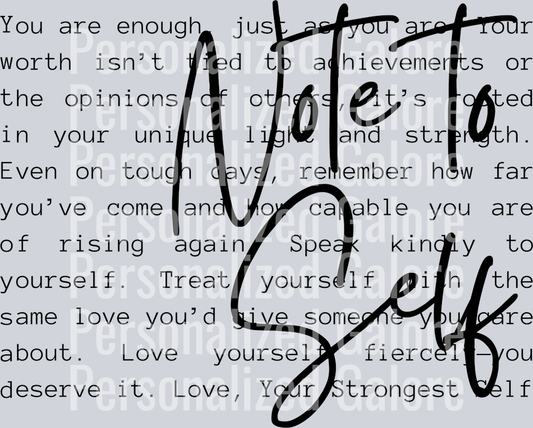 You are enough, just as you are. Your
worth isn't tied to achievements or
the opinions of others, it's rooted
in your unique light and strength.
Even on tough days, remember how far
you've come and how capable you are
of rising again. Speak kindly to
yourself. Treat yourself with the
same love you'd give someone you care
about. Love yourself fiercely—you
deserve it. Love, Your Strongest Self
Note To
Self
Personalized Galore
Personalized Galore
Personalized Galore
Personalized Galore
Personalized Galore